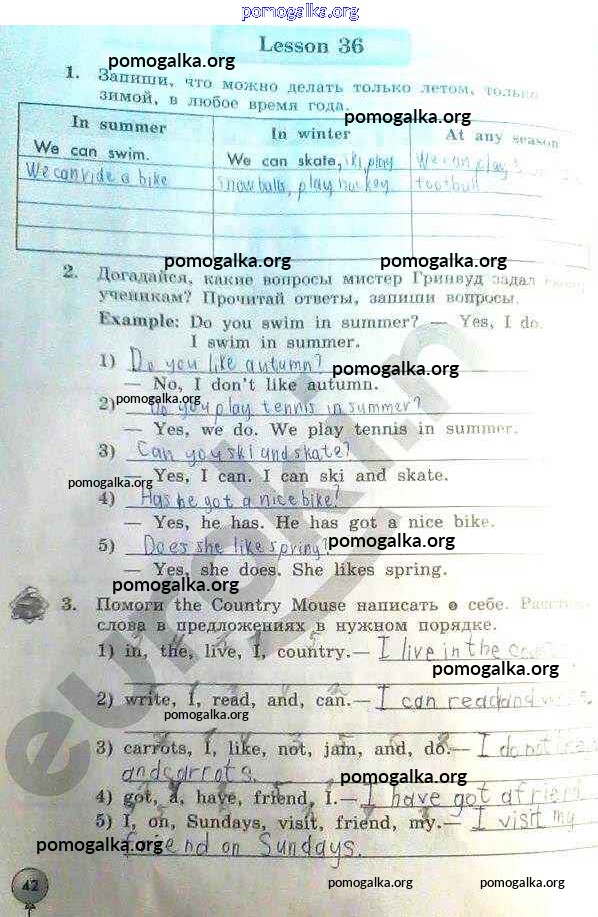 pomogalka.org
Lesson 36
pomogalka.org
1. Запиши, что можно делать только летом, только
зимой, в любое время года.
pomogalka.org
In summer In winter At any season
We can swim. We can skate, ski, play We can play
We can ride a bike snowballs, play hockey football
pomogalka.org pomogalka.org
2. Догадайся, какие вопросы мистер Гринвуд задал
ученикам? Прочитай ответы, запиши вопросы.
Example: Do you swim in summer? — Yes, I do.
I swim in summer.
1) Do you like autumn?
pomogalka.org
— No, I don't like autumn.
2) Do you play tennis in summer?
— Yes, we do. We play tennis in summer.
3) Can you ski and skate?
pomogalka.org
— Yes, I can. I can ski and skate.
pomogalka.org
4) Has he got a nice bike?
— Yes, he has. He has got a nice bike.
5) Does she like spring?
pomogalka.org
— Yes, she does. She likes spring.
pomogalka.org
3. Помоги the Country Mouse написать о себе.
слова в предложениях в нужном порядке.
1) in, the, live, I, country.— I live in the
pomogalka.org
2) write, I, read, and, can.— I can read and
pomogalka.org
3) carrots, I, like, not, jam, and, do.— I do not
and carrots.
pomogalka.org
4) got, a, have, friend, I.— I have got a friend
5) I, on, Sundays, visit, friend, my.— I visit my
pomogalka.org
friend on Sundays.
42
pomogalka.org pomogalka.org
eurokin